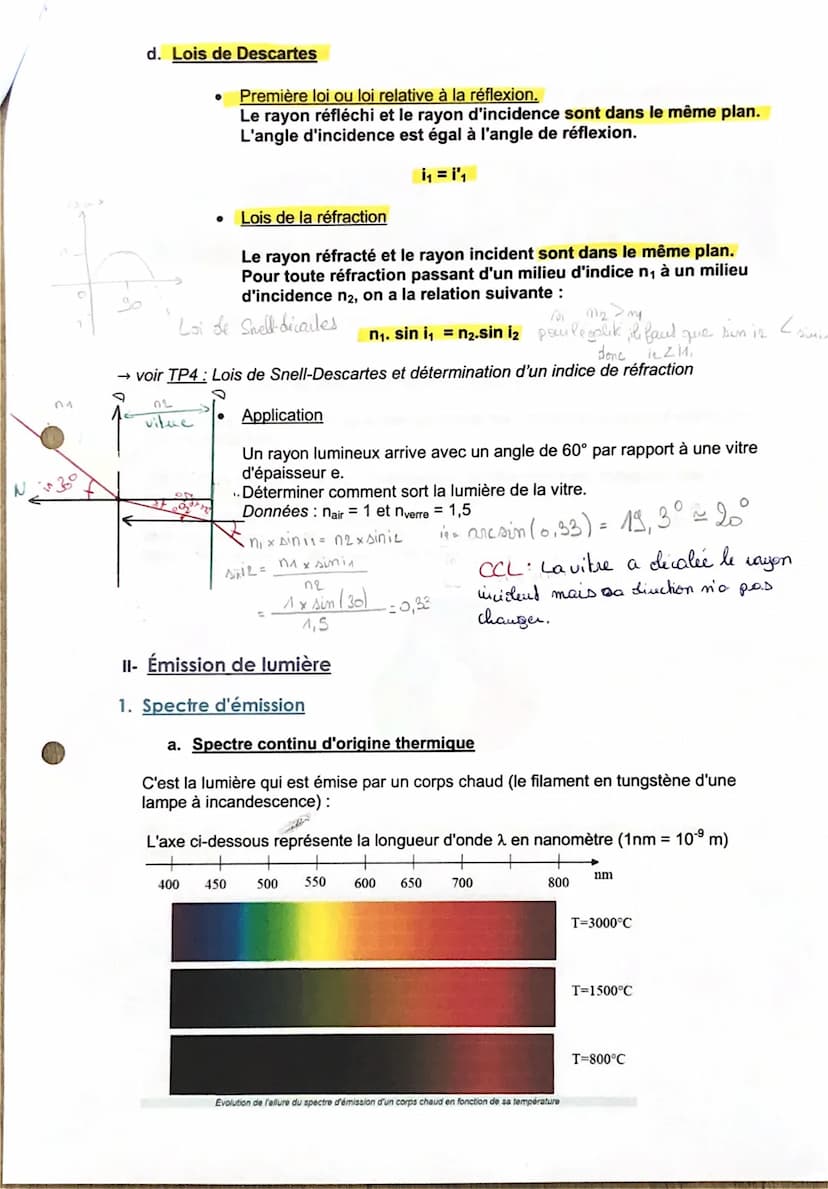 d. Lois de Descartes
• Première loi ou loi relative à la réflexion.
Le rayon réfléchi et le rayon d'incidence sont dans le même plan.
L'angle d'incidence est égal à l'angle de réflexion.
i₁ = i'₁
• Lois de la réfraction
0
90
Le rayon réfracté et le rayon incident sont dans le même plan.
Pour toute réfraction passant d'un milieu d'indice n₁ à un milieu
d'incidence n₂, on a la relation suivante :
Loi de Snell-décartes
n₁. sin i₁ = n₂.sin i₂
si n2 > n1
il faut que sin i2 <
donc
→ voir TP4 : Lois de Snell-Descartes et détermination d'un indice de réfraction
n1
n2
vitre
• Application
Un rayon lumineux arrive avec un angle de 60° par rapport à une vitre
d'épaisseur e.
N
30°
Déterminer comment sort la lumière de la vitre.
Données : nair = 1 et nverre = 1,5
n1 x sin i1 = n2 x sin i2
sin i2 = n1 x sin i1
n2
= 1 x sin(30)
1,5
= 0,33
arcsin(0,33) = 19,3° ≃ 20°
CCL : La vitre a décalée le rayon
incident mais sa direction n'a pas
changer.
II- Émission de lumière
1. Spectre d'émission
a. Spectre continu d'origine thermique
C'est la lumière qui est émise par un corps chaud (le filament en tungstène d'une
lampe à incandescence) :
L'axe ci-dessous représente la longueur d'onde λ en nanomètre (1nm = 10⁻⁹ m)
400 450 500 550 600 650 700 800 nm
T=3000°C
T=1500°C
T=800°C
Evolution de l'allure du spectre d'émission d'un corps chaud en fonction de sa température